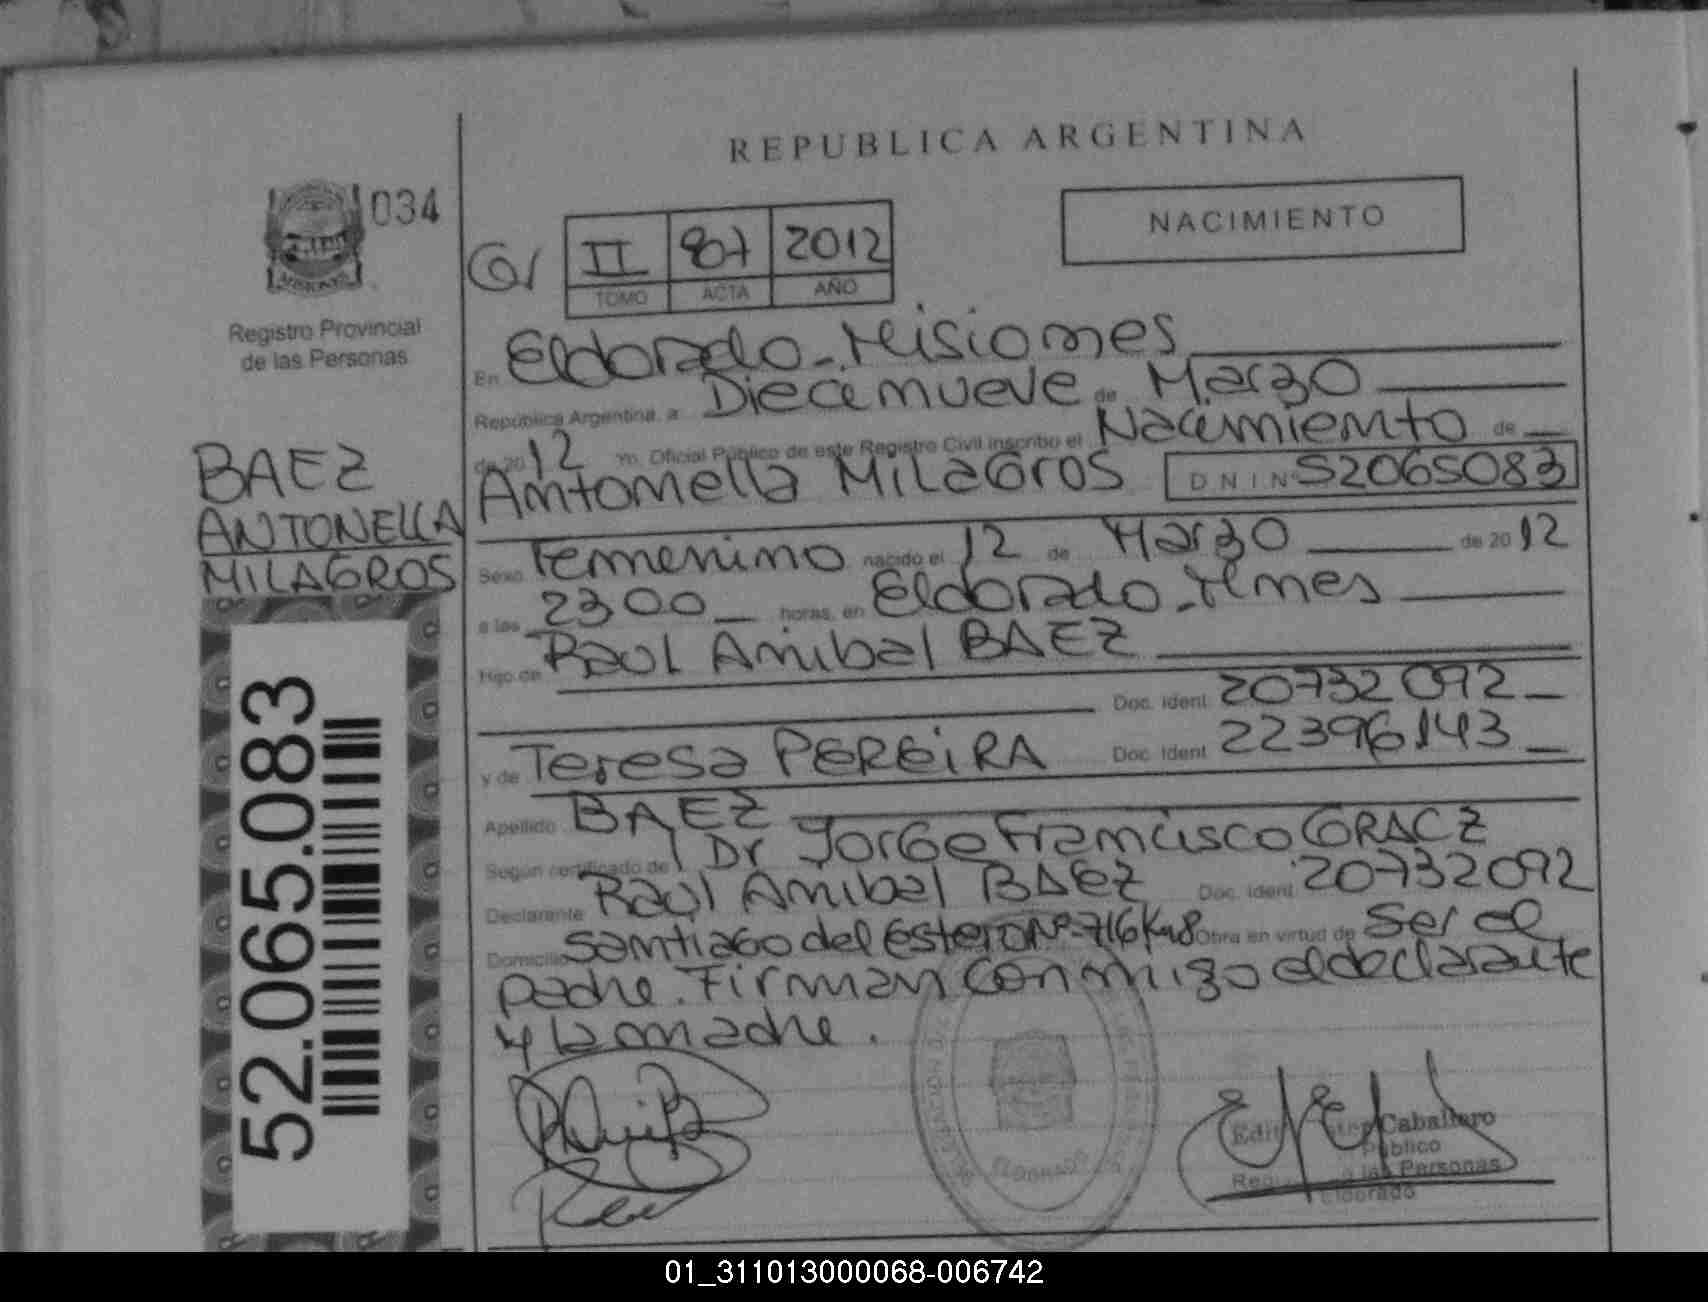 REPUBLICA ARGENTINA
034
NACIMIENTO
II 807 2012
TOMO ACTA AÑO
Registro Provincial
de las Personas
En Eldorado - Misiones
República Argentina, a Diecinueve de Marzo
de 2012 Yo, Oficial Público de este Registro Civil inscribo el Nacimiento de
Antonella Milagros D N I N° 52065083
BAEZ
ANTONELLA
MILAGROS
Sexo Femenino nacido el 12 de Marzo de 2012
a las 2300 horas, en Eldorado - Mnes
Hijo de Raul Anibal BAEZ
Doc. Ident. 20732092
y de Teresa PEREiRA Doc. Ident. 22396143
Apellido BAEZ
Según certificado de Dr Jorge Francisco GRACZ
Declarante Raul Anibal BAEZ Doc. Ident. 20732092
Domicilio Santiago del Estero Nº 716 Km8 Obra en virtud de Ser el
padre. Firman Conmigo el declarante
y la madre.
52.065.083
ELDORADO
Caballero
Público
las Personas
Eldorado
01_311013000068-006742